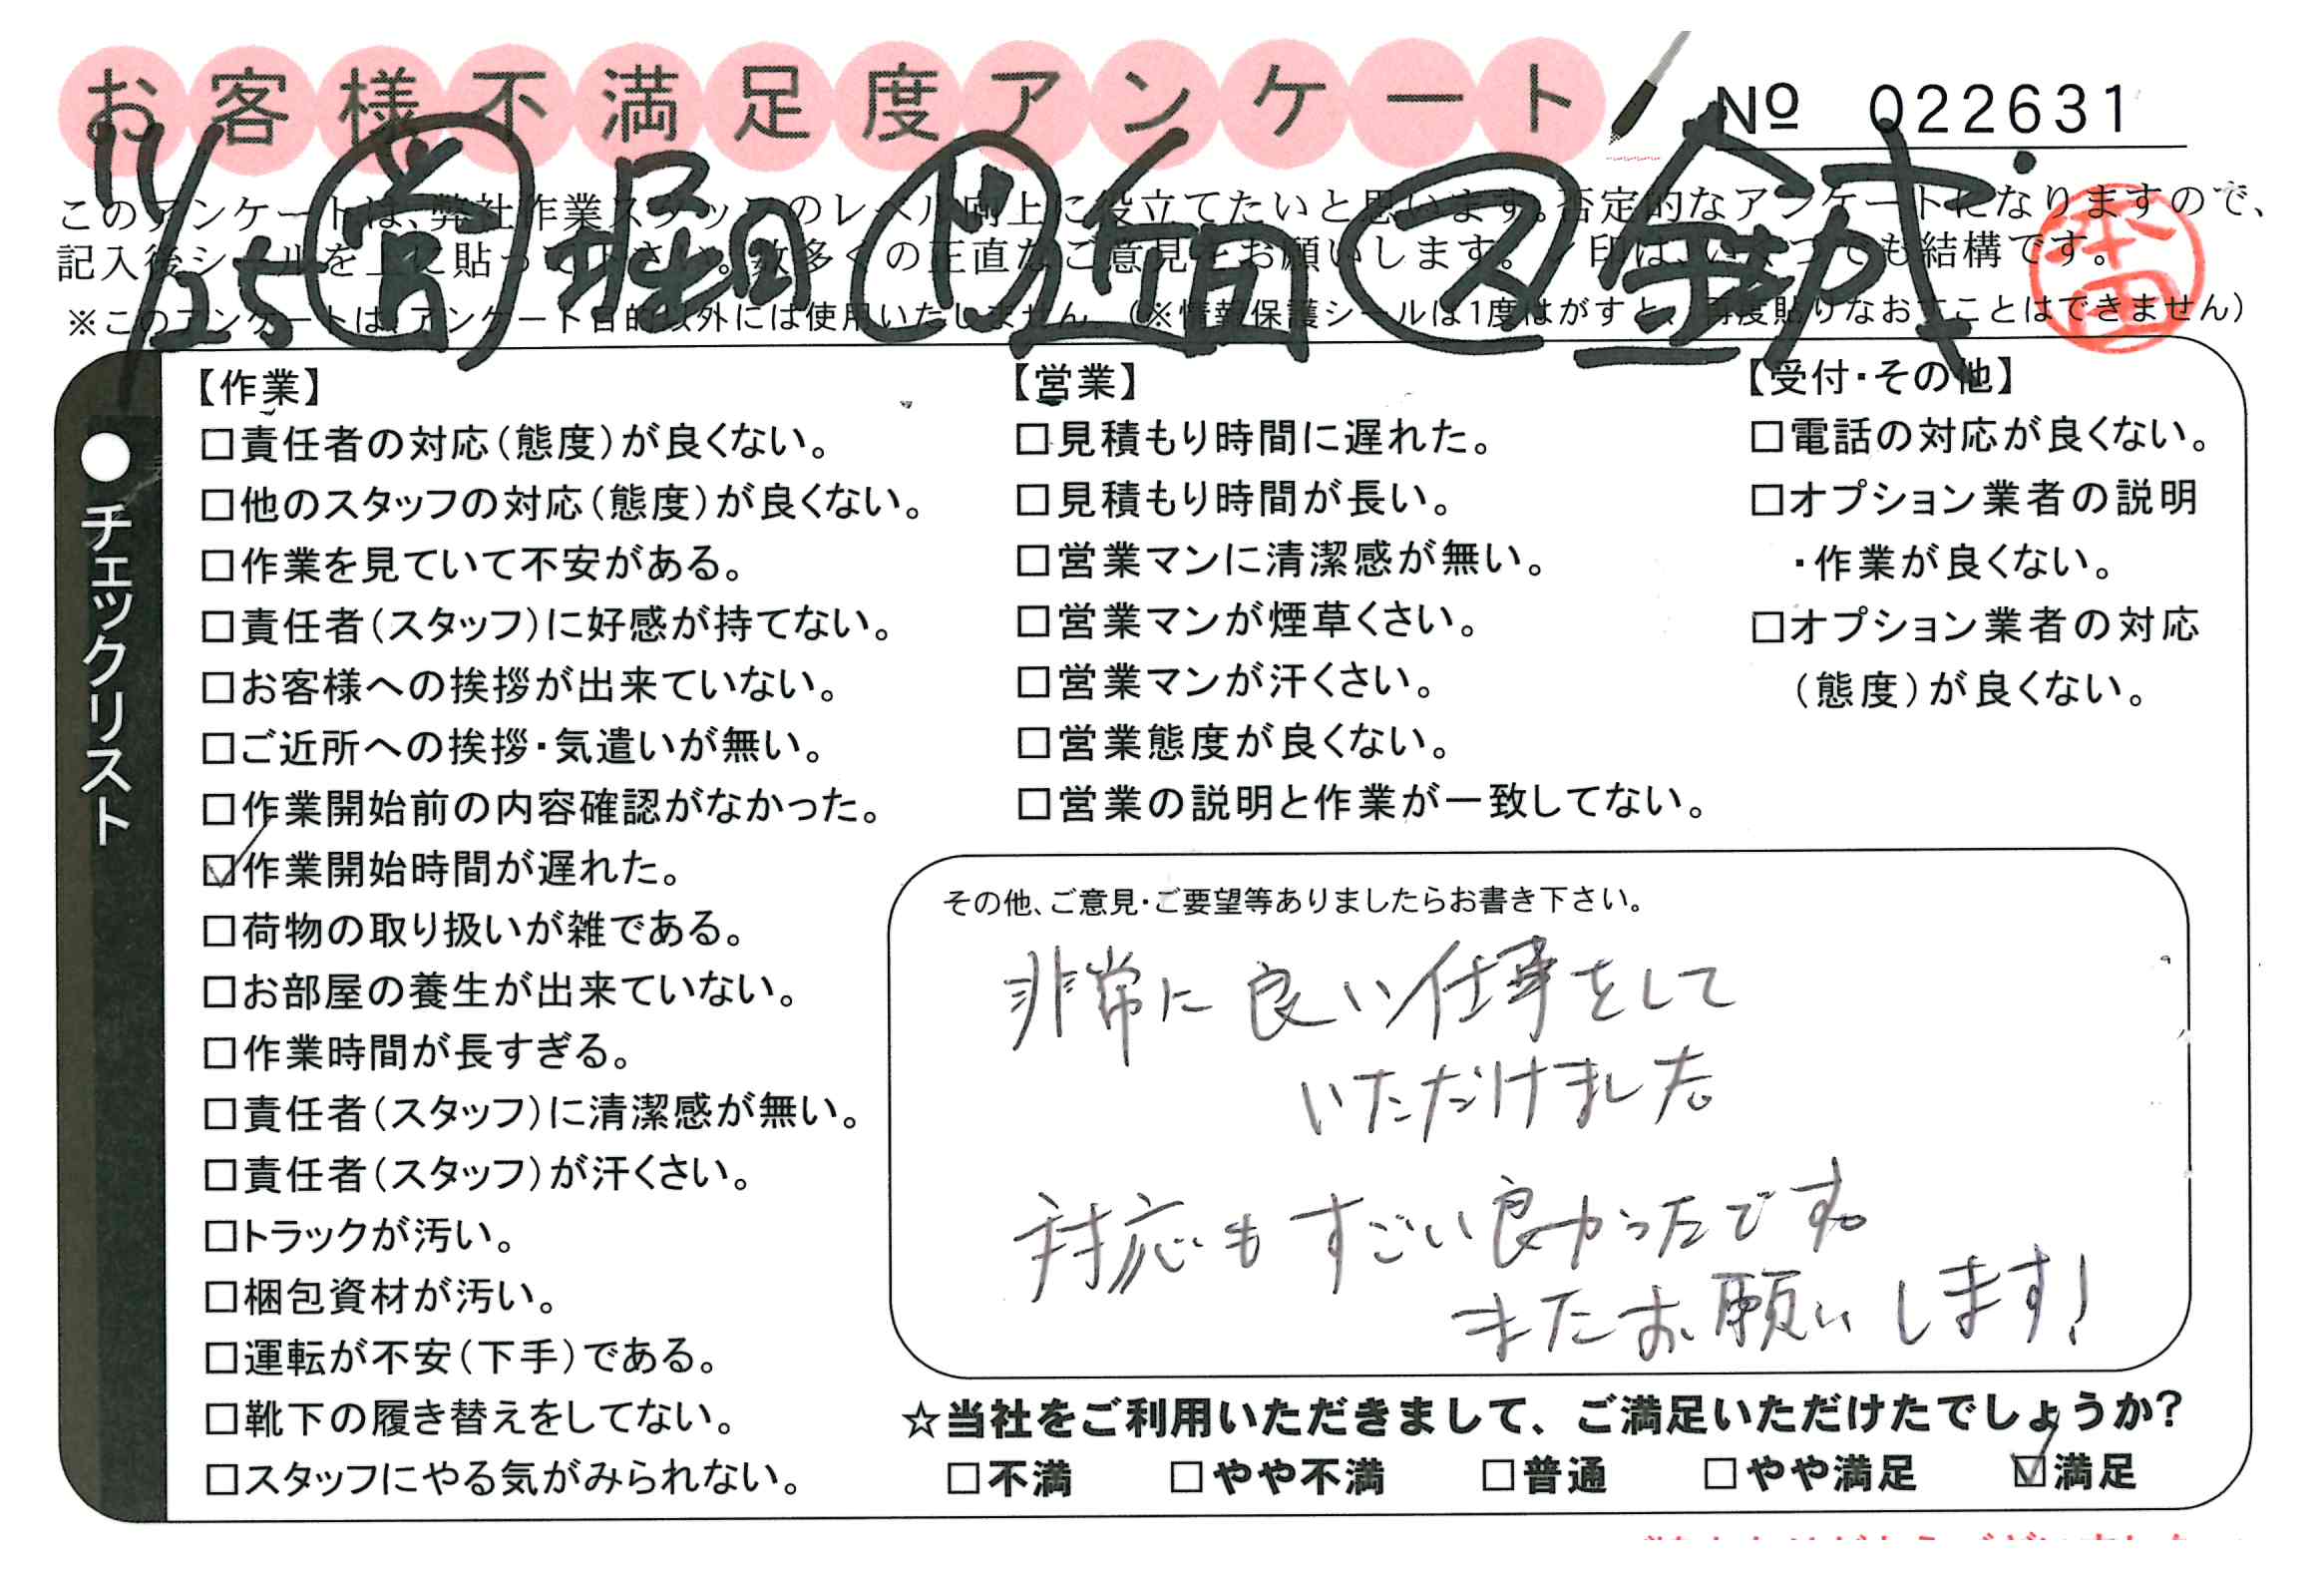 お客様不満足度アンケート
№ 022631
11/25 営 堀田 リ 作 ス 金城
このアンケートは、弊社作業スタッフのレベル向上に役立てたいと思います。否定的なアンケートになりますので、
記入後シールを上に貼って下さい。数多くの正直なご意見をお願いします。✓印はいくつでも結構です。
※このアンケートは、アンケート目的以外には使用いたしません。(※情報保護シールは1度はがすと、再度貼りなおすことはできません)
本田
●チェックリスト
【作業】
□責任者の対応(態度)が良くない。
□他のスタッフの対応(態度)が良くない。
□作業を見ていて不安がある。
□責任者(スタッフ)に好感が持てない。
□お客様への挨拶が出来ていない。
□ご近所への挨拶・気遣いが無い。
□作業開始前の内容確認がなかった。
☑作業開始時間が遅れた。
□荷物の取り扱いが雑である。
□お部屋の養生が出来ていない。
□作業時間が長すぎる。
□責任者(スタッフ)に清潔感が無い。
□責任者(スタッフ)が汗くさい。
□トラックが汚い。
□梱包資材が汚い。
□運転が不安(下手)である。
□靴下の履き替えをしてない。
□スタッフにやる気がみられない。
【営業】
□見積もり時間に遅れた。
□見積もり時間が長い。
□営業マンに清潔感が無い。
□営業マンが煙草くさい。
□営業マンが汗くさい。
□営業態度が良くない。
□営業の説明と作業が一致してない。
【受付・その他】
□電話の対応が良くない。
□オプション業者の説明
・作業が良くない。
□オプション業者の対応
(態度)が良くない。
その他、ご意見・ご要望等ありましたらお書き下さい。
非常に良い仕事をして
いただけました。
対応もすごい良かったです。
またお願いします!
☆当社をご利用いただきまして、ご満足いただけたでしょうか?
□不満 □やや不満 □普通 □やや満足 ☑満足